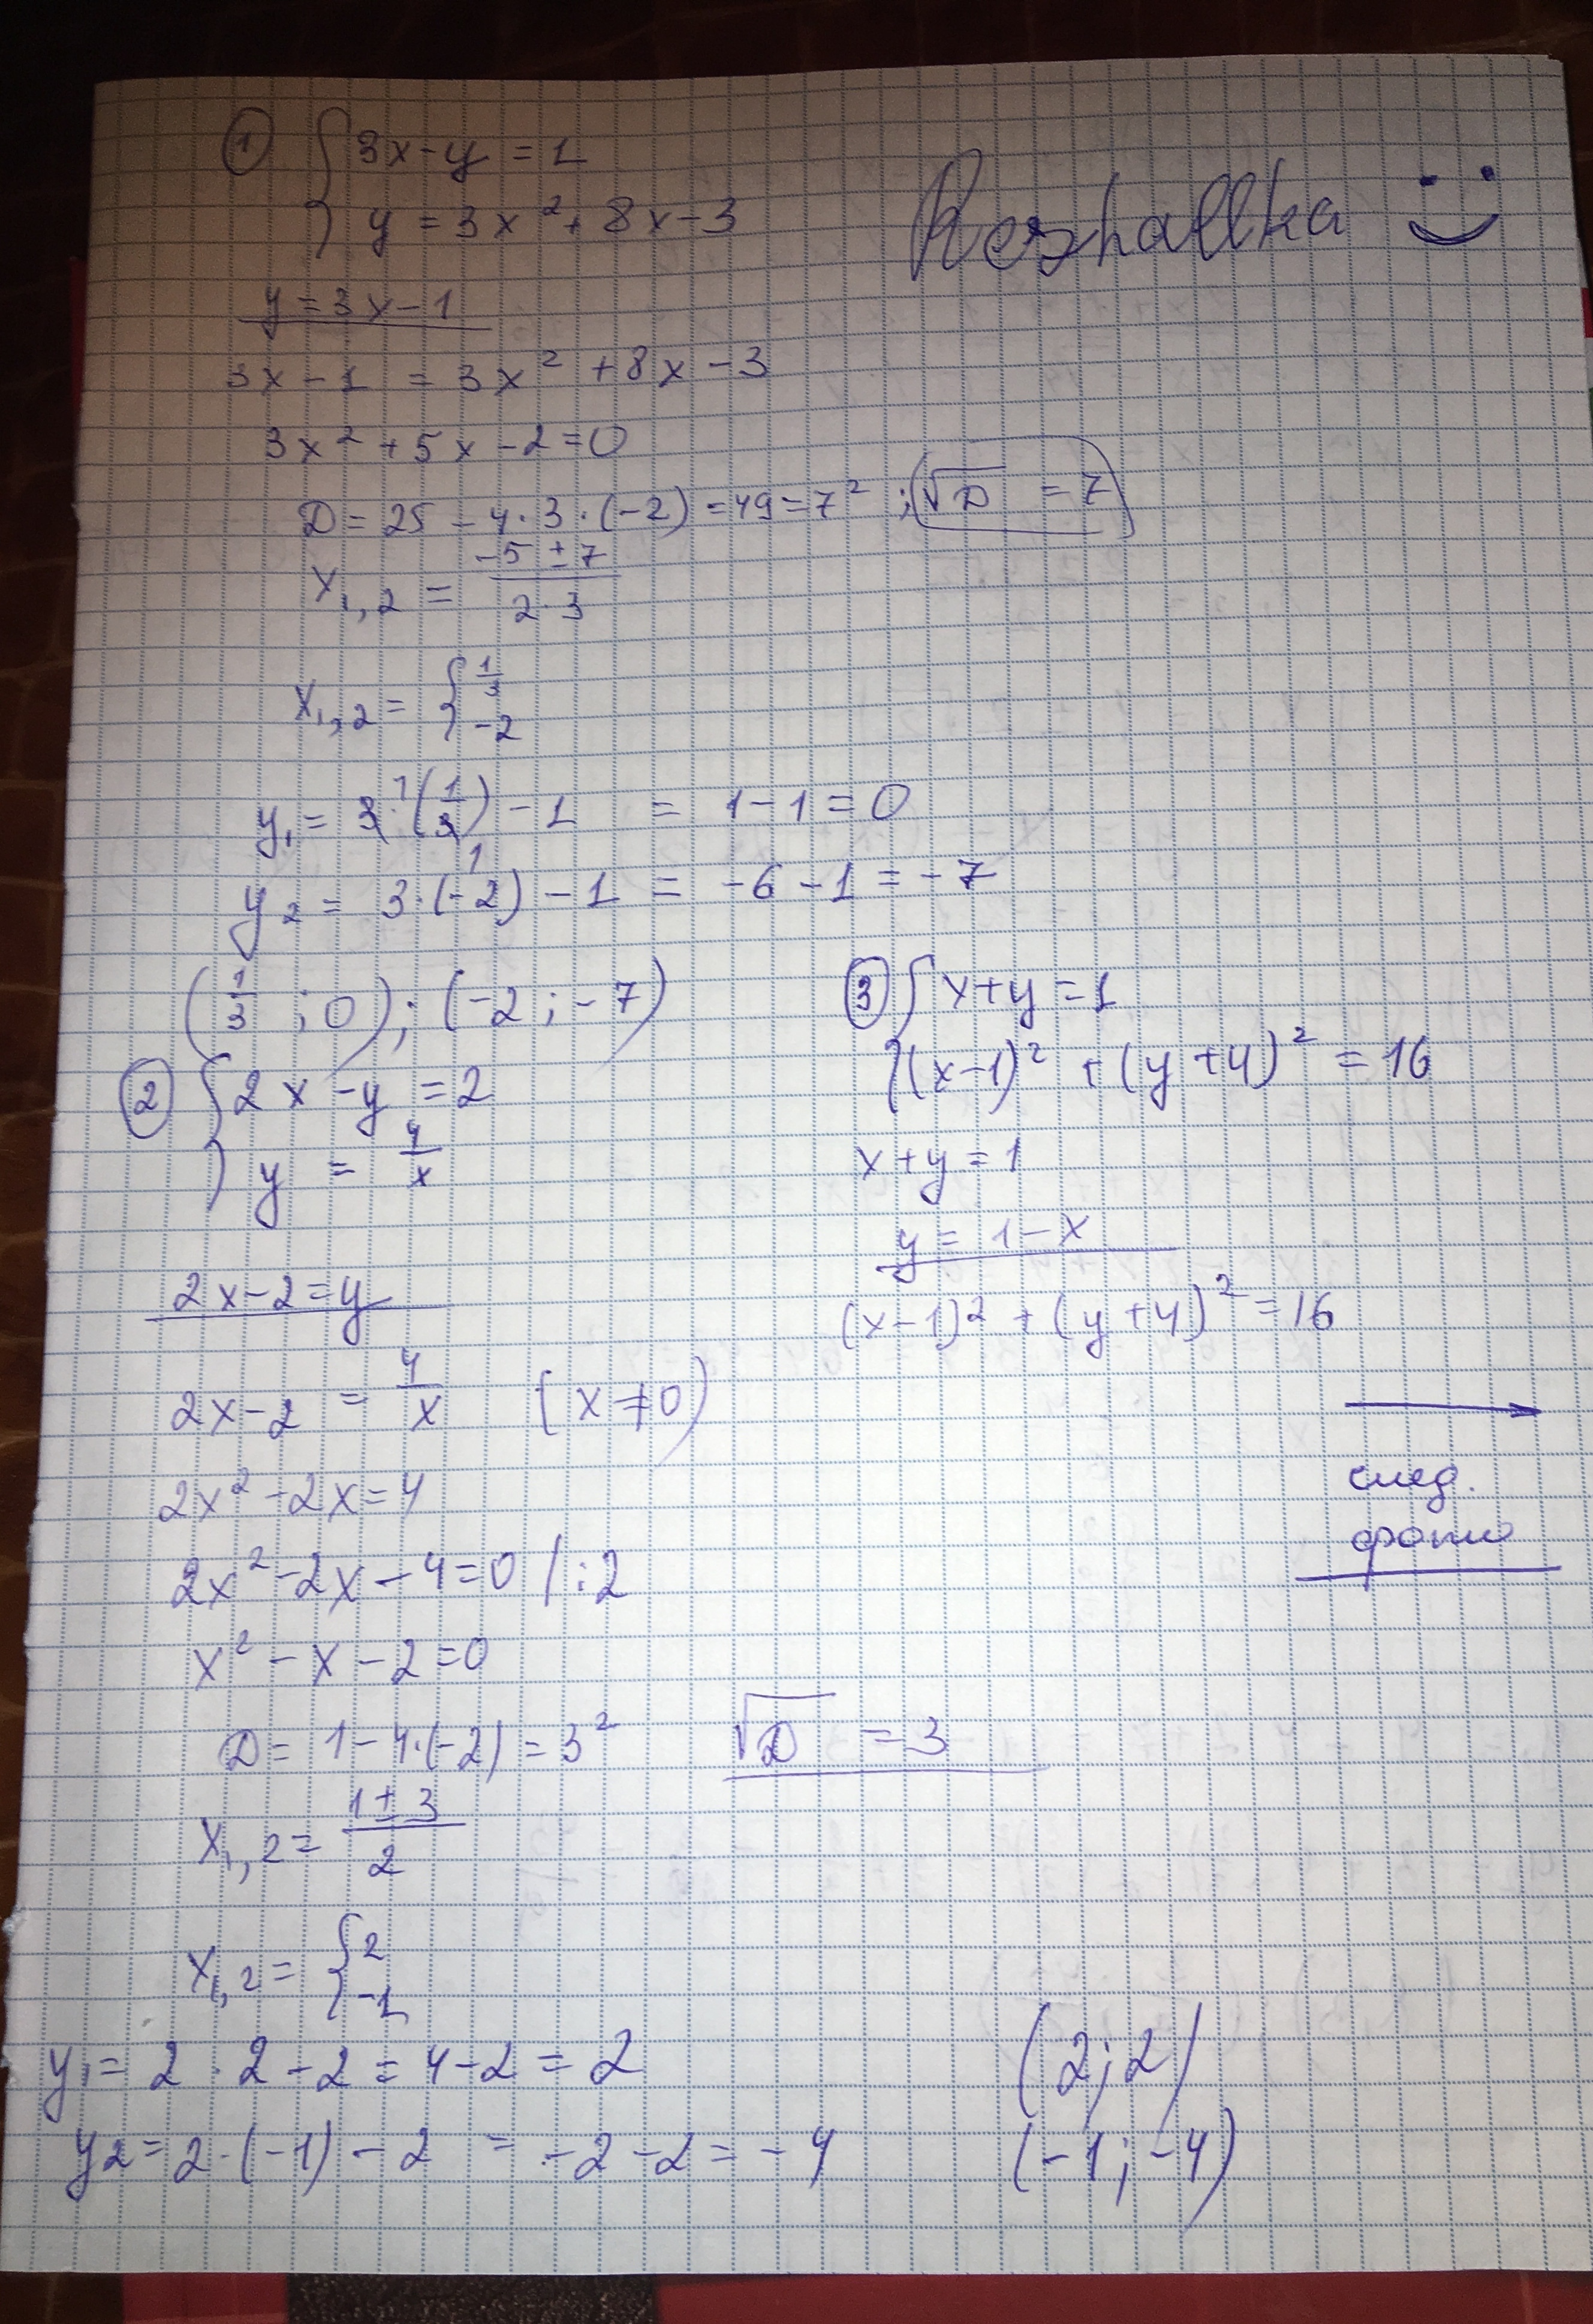 ① { 3x-y = 1
y = 3x² + 8x - 3
Reshallka
y = 3x - 1
3x - 1 = 3x² + 8x - 3
3x² + 5x - 2 = 0
D = 25 - 4·3·(-2) = 49 = 7² ; √D = 7
x₁,₂ = (-5 ± 7)/(2·3)
x₁,₂ = { 1/3
-2
y₁ = 3·(1/3) - 1 = 1 - 1 = 0
y₂ = 3·(-2) - 1 = -6 - 1 = -7
(1/3 ; 0); (-2 ; -7)
② { 2x - y = 2
y = 4/x
2x - 2 = y
2x - 2 = 4/x (x ≠ 0)
2x² - 2x = 4
2x² - 2x - 4 = 0 | :2
x² - x - 2 = 0
D = 1 - 4·(-2) = 3² √D = 3
x₁,₂ = (1 ± 3)/2
x₁,₂ = { 2
-1
y₁ = 2·2 - 2 = 4 - 2 = 2 (2; 2)
y₂ = 2·(-1) - 2 = -2 - 2 = -4 (-1; -4)
③ { x + y = 1
(x-1)² + (y+4)² = 16
x + y = 1
y = 1 - x
(x-1)² + (y+4)² = 16
→
след.
фото